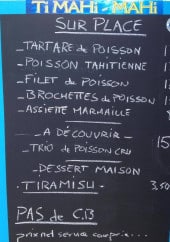 TI MAHI - MAHI
SUR PLACE
- TARTARE de POISSON 1
- POISSON TAHITIENNE 1
- FILET de POISSON
- BROCHETTES de POISSON 1
- ASSIETTE MARMAILLE
- A DÉCOUVRIR - 15
- TRIO de POISSON CRU
- DESSERT MAISON
- TIRAMISU - 3,50
PAS de C.B
prix net service compris...